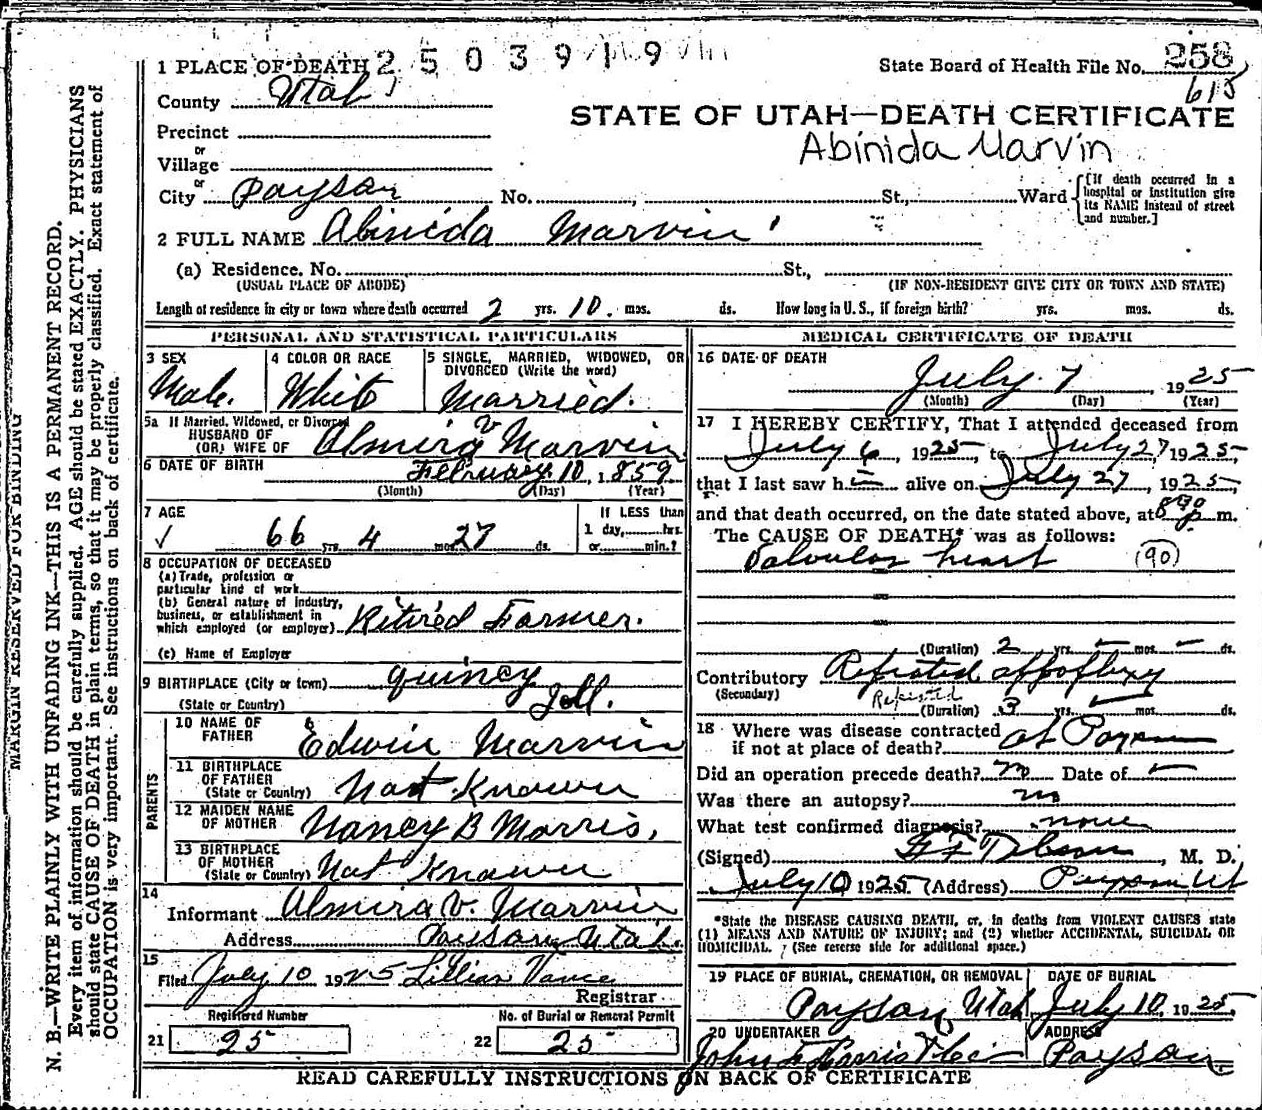 1 PLACE OF DEATH 2 5 0 3 9 1 9
State Board of Health File No. 258
615
County Utah
STATE OF UTAH—DEATH CERTIFICATE
Precinct
Abinida Marvin
or
Village
or
City Payson No. , St., Ward
[If death occurred in a hospital or institution give its NAME instead of street and number.]
2 FULL NAME Abinida Marvin
(a) Residence. No. St.,
(USUAL PLACE OF ABODE) (IF NON-RESIDENT GIVE CITY OR TOWN AND STATE)
Length of residence in city or town where death occurred 2 yrs. 10 mos. ds. How long in U. S., if foreign birth? yrs. mos. ds.
PERSONAL AND STATISTICAL PARTICULARS
3 SEX
Male.
4 COLOR OR RACE
White
5 SINGLE, MARRIED, WIDOWED, OR DIVORCED (Write the word)
Married.
5a If Married, Widowed, or Divorced
HUSBAND OF
(OR) WIFE OF Almira V Marvin
6 DATE OF BIRTH February 10, 1859
(Month) (Day) (Year)
7 AGE
66 yrs. 4 mos. 27 ds.
If LESS than
1 day, hrs.
or min.?
8 OCCUPATION OF DECEASED
(a) Trade, profession or
particular kind of work
(b) General nature of industry,
business, or establishment in
which employed (or employer) Retired Farmer.
(c) Name of Employer
9 BIRTHPLACE (City or town) Quincy
(State or Country) Ill.
PARENTS
10 NAME OF
FATHER Edwin Marvin
11 BIRTHPLACE
OF FATHER
(State or Country) Not Known
12 MAIDEN NAME
OF MOTHER Nancy B Morris,
13 BIRTHPLACE
OF MOTHER
(State or Country) Not Known
14
Informant Almira V. Marvin
Address Payson, Utah.
15
Filed July 10 1925 Lillian Vance
Registrar
Registered Number
21 25
No. of Burial or Removal Permit
22 25
MEDICAL CERTIFICATE OF DEATH
16 DATE OF DEATH
July 7 1925
(Month) (Day) (Year)
17 I HEREBY CERTIFY, That I attended deceased from
July 6, 1925, to July 27, 1925,
that I last saw h alive on July 27, 1925,
and that death occurred, on the date stated above, at 8 p m.
The CAUSE OF DEATH* was as follows:
heart (90)
(Duration) 2 yrs. mos. ds.
Contributory Repeated
(Secondary) Repeated
(Duration) 3 yrs. mos. ds.
18 Where was disease contracted
if not at place of death? at Payson
Did an operation precede death? no Date of
Was there an autopsy? no
What test confirmed diagnosis? none
(Signed) , M. D.
July 10 1925 (Address) Payson Ut
*State the DISEASE CAUSING DEATH, or, in deaths from VIOLENT CAUSES state
(1) MEANS AND NATURE OF INJURY; and (2) whether ACCIDENTAL, SUICIDAL OR
HOMICIDAL. (See reverse side for additional space.)
19 PLACE OF BURIAL, CREMATION, OR REMOVAL
Payson Utah
DATE OF BURIAL
July 10, 1925
20 UNDERTAKER
John
ADDRESS
Payson
READ CAREFULLY INSTRUCTIONS ON BACK OF CERTIFICATE
MARGIN RESERVED FOR BINDING
N. B.—WRITE PLAINLY WITH UNFADING INK—THIS IS A PERMANENT RECORD.
Every item of information should be carefully supplied. AGE should be stated EXACTLY. PHYSICIANS
should state CAUSE OF DEATH in plain terms, so that it may be properly classified. Exact statement of
OCCUPATION is very important. See instructions on back of certificate.